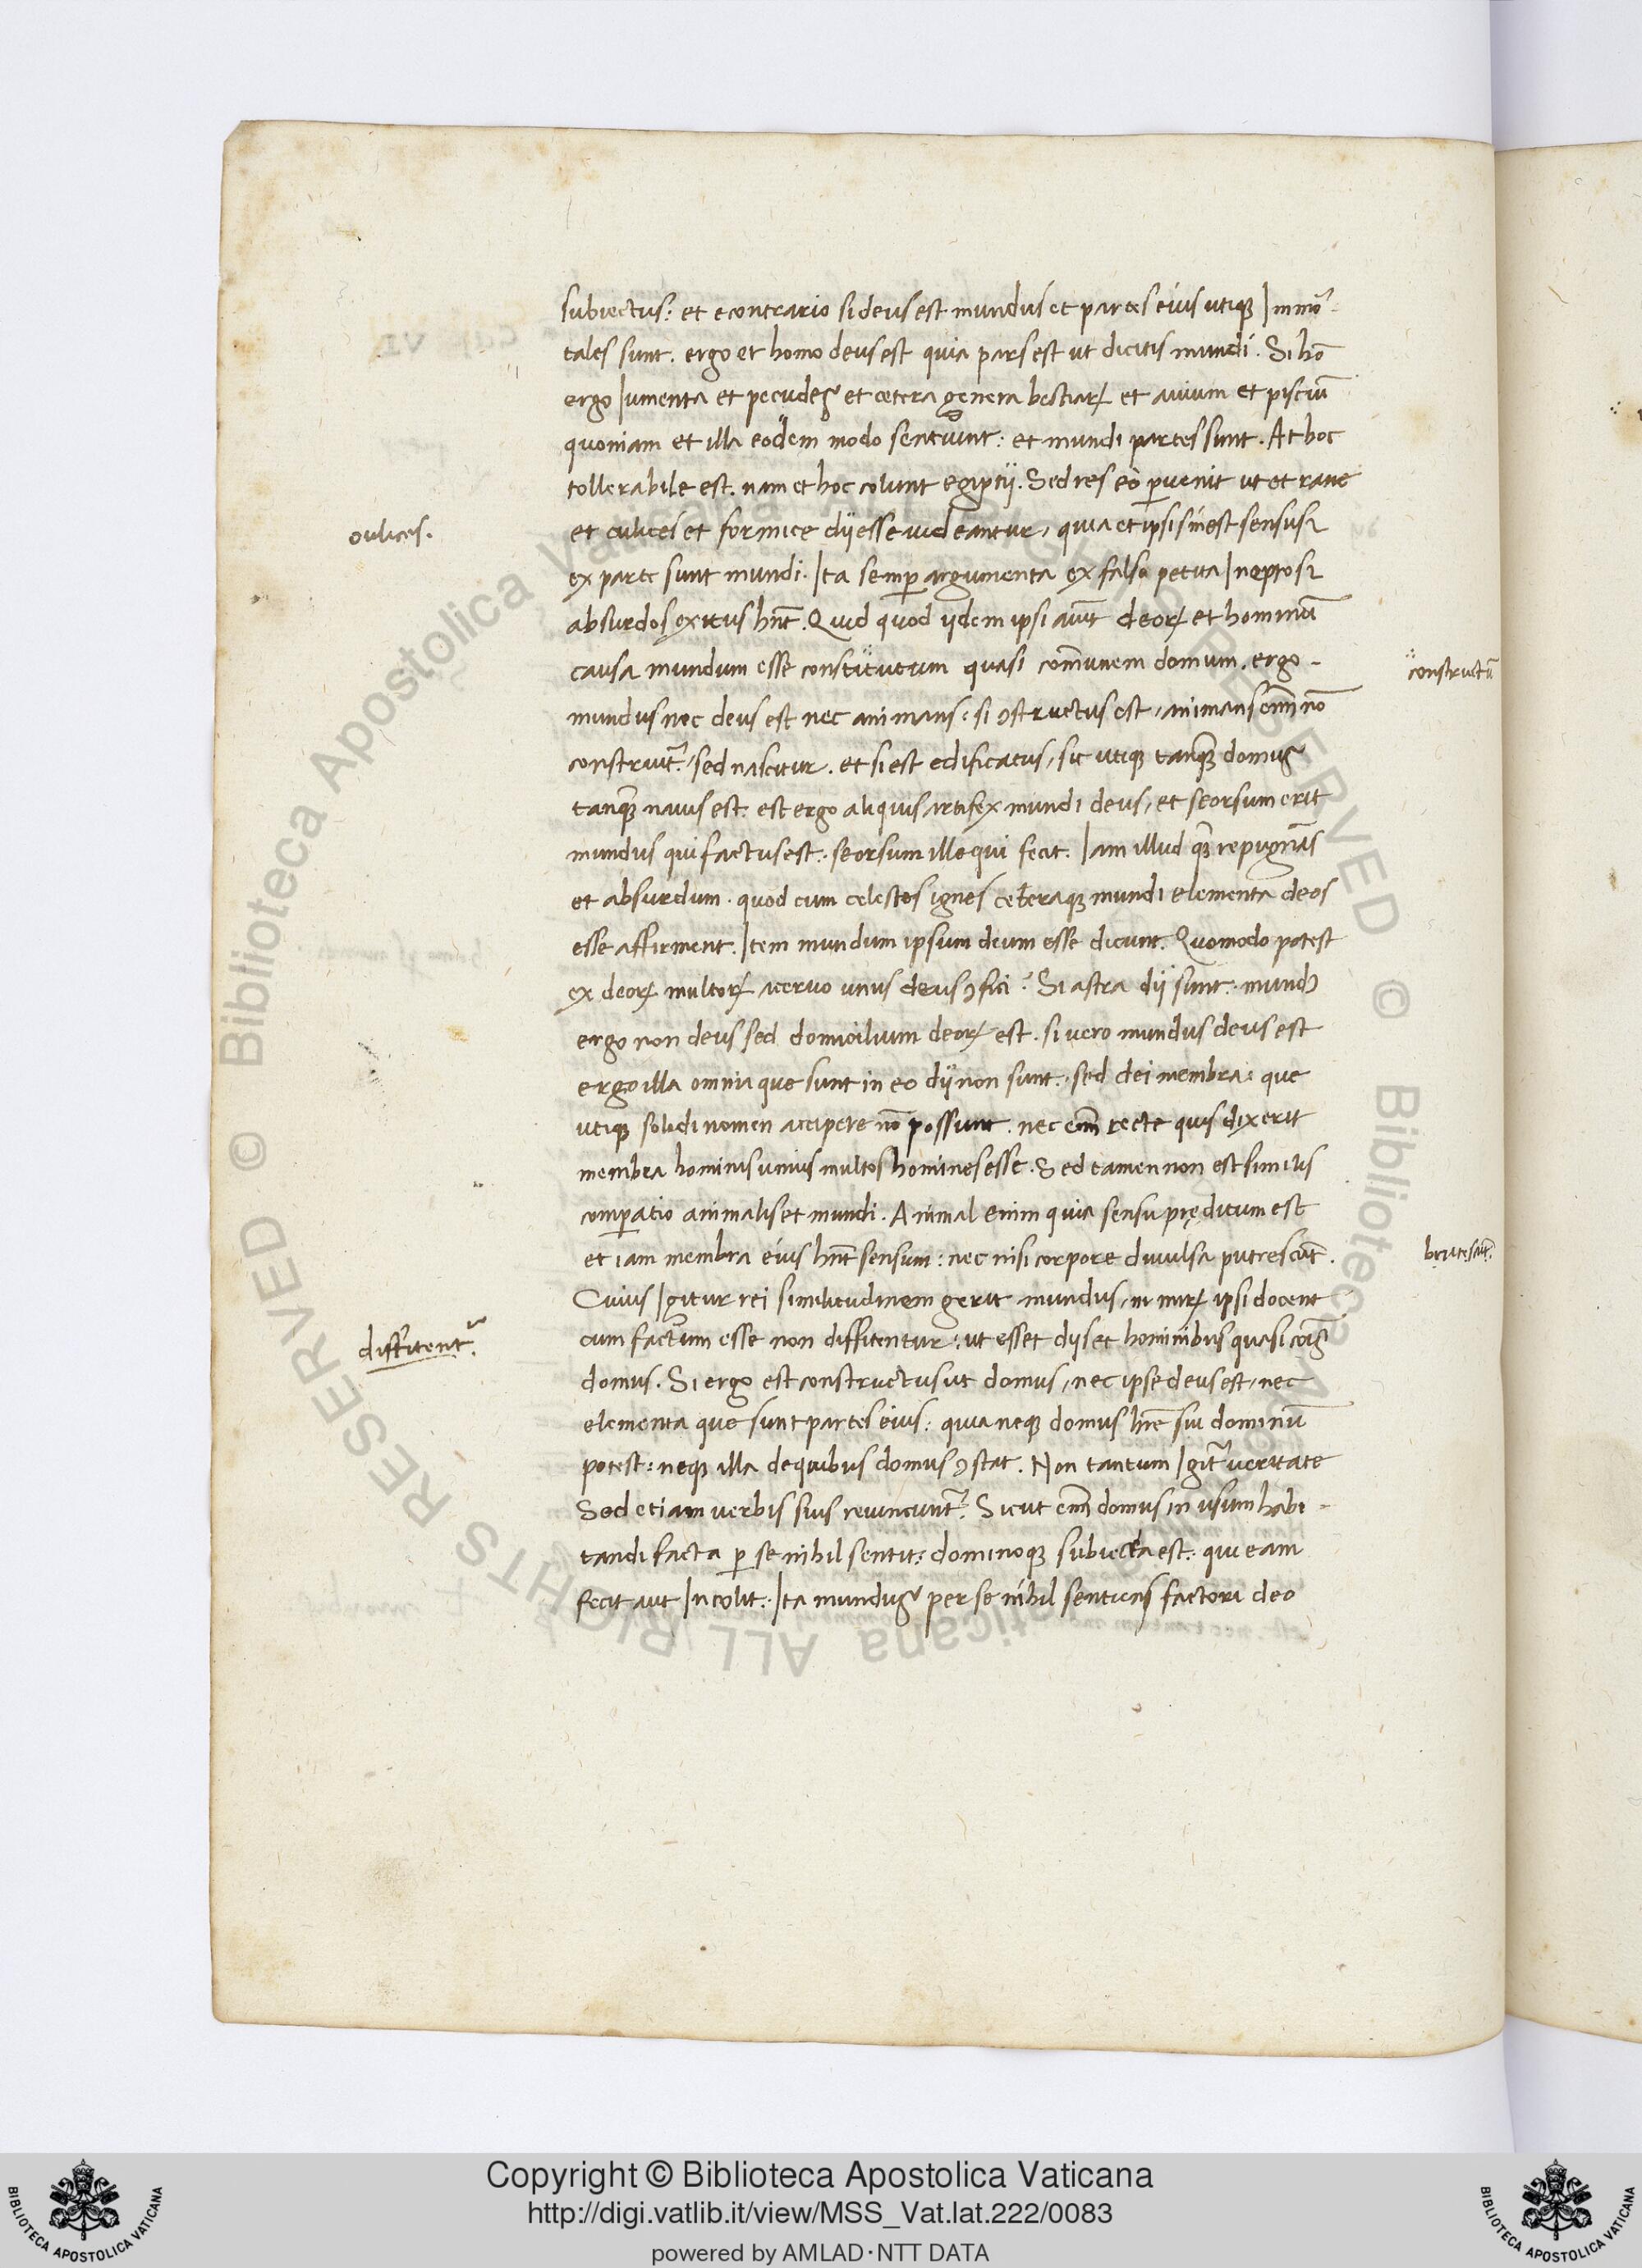 subiectus: et econtrario si deus est mundus et partes eius utiqꝫ Immõr-
tales sunt. ergo et homo deus est quia pars est ut dicitis mundi. Si hõ
ergo Iumenta et pecudes et cetera genera bestiaꝝ et avium et pisciũ
quoniam et illa eodem modo sentiunt: et mundi partes sunt. At hoc
tollerabile est. nam et hoc colunt egiptij. Sed res eo ꝑvenit ut et rane
et culices et formice dij esse videantur, quia et ipsis inest sensus
ex parte sunt mundi. Ita semꝑ argumenta ex falso petita Ineptos
absurdos exitus hñt. Quid quod ijdem ipsi aiũt deoꝝ et hominũ
causa mundum esse constitutum quasi com̃unem domum. ergo-
mundus nec deus est nec animans: si ꝯstructus est, animans eñi nõ
construit᷑, sed nascitur. et si est edificatus, sic utiqꝫ tanqꝫ domus
tanqꝫ navis est: est ergo aliquis artifex mundi deus, et seorsum erit
mundus qui factus est: seorsum ille qui fecit. Iam illud qꝫ repugnãs
et absurdum. quod cum celestes ignes ceteraqꝫ mundi elementa deos
esse affirment. Item mundum ipsum deum esse dicunt. Quomodo potest
ex deoꝝ multoꝝ acervo unus deus ꝯfici? Si astra dij sunt: mundꝰ
ergo non deus sed domicilium deoꝝ est. si vero mundus deus est
ergo illa omnia que sunt in eo dij non sunt: sed dei membra: que
utiqꝫ soli dei nomen accipere nõ possunt. nec eñi recte quis dixerit
membra hominis unius multos homines esse. Sed tamen non est similis
comꝑatio animalis et mundi. Animal enim quia sensu pręditum est
et iam membra eius hñt sensum: nec nisi corpore divulsa putrescũt.
Cuius Igitur rei similitudinem gerit mundus, ni miꝝ ipsi docent
cum factum esse non diffitentur: ut esset dijs et hominibus quasi cõis
domus. Si ergo est constructus ut domus, nec ipse deus est, nec
elementa que sunt partes eius: quia neqꝫ domus hr̃e sui dominũ
potest: neqꝫ illa de quibus domus ꝯstat. Non tantum Igit᷑ veritate
Sed etiam verbis suis revincunt᷑. Sicut eñi domus in usum habi-
tandi facta ꝑ se nihil sentit: dominoqꝫ subiecta est: qui eam
fecit aut Incolit: Ita mundus per se nihil sentiens factori deo
culices.
constructũ
brutescũt.
diffitent᷑.
Copyright © Biblioteca Apostolica Vaticana
http://digi.vatlib.it/view/MSS_Vat.lat.222/0083
powered by AMLAD·NTT DATA
BIBLIOTECA APOSTOLICA VATICANA
BIBLIOTECA APOSTOLICA VATICANA